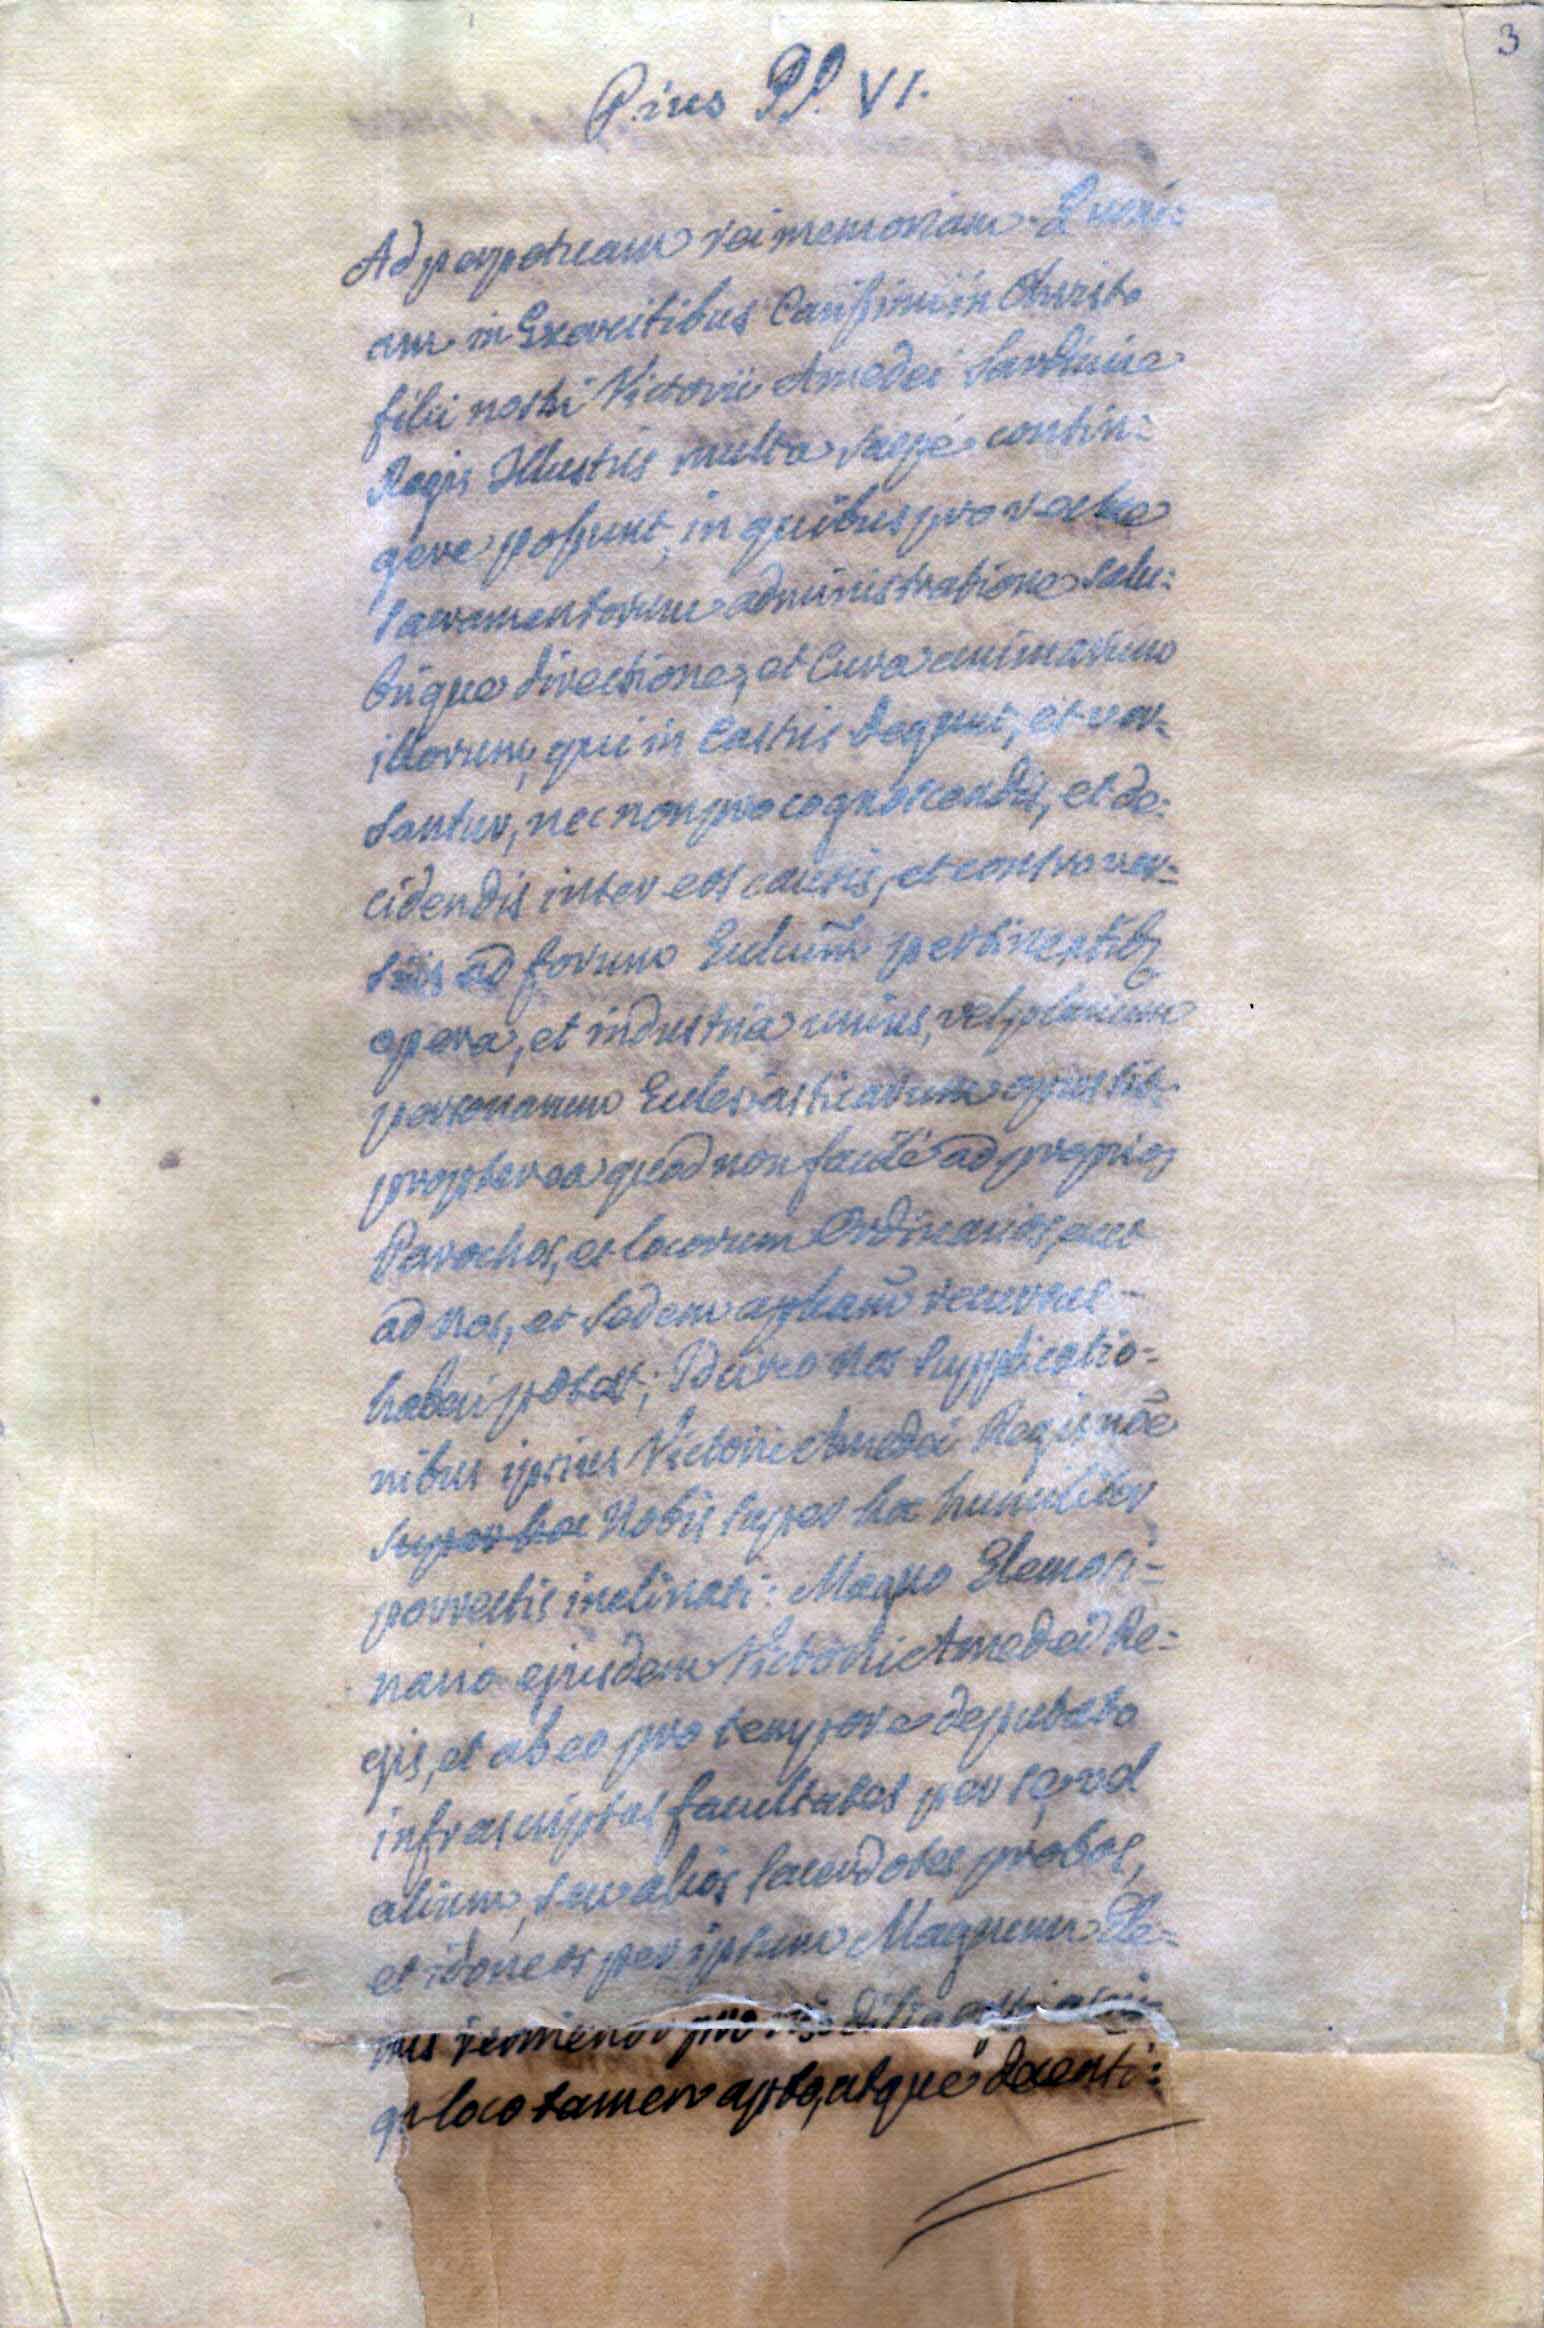 3
Pius PP. VI.
Ad perpetuam rei memoriam. Quoni=
am in Exercitibus Carissimi in Christo
filii nostri Victorii Amedei Sardinie
Regis Illustris multa saepe contin=
gere possunt, in quibus pro recta
sacramentorum administratione salu=
brique directione, et Cura animarum
illorum, qui in Castris degunt, et ver=
santur, nec non pro cognoscendis, et de=
cidendis inter eos causis, et controver=
siis ad forum pertinentib
opera, et industria unius, vel plarium
personarum Ecclesiasticarum opus sit
propterea quod non facile ad proprios
Parochos, et locorum Ordinarios, aut
ad Nos, et Sedem recursus
haberi potest; Nos supplicatio=
nibus ipsius Victorii Amedei Regis nõe
super hoc Nobis super hoc humiliter
porrectis inclinati: Magno Elemosi=
nario ejusdem Victorii Amedei Re=
gis, et ab eo pro tempore deputato
infrascriptas facultates per se, vel
alium, seu alios Sacerdotes probos,
et idoneos per ipsum Magnum Ele=
pro
loco tamen apto, atque decenti=